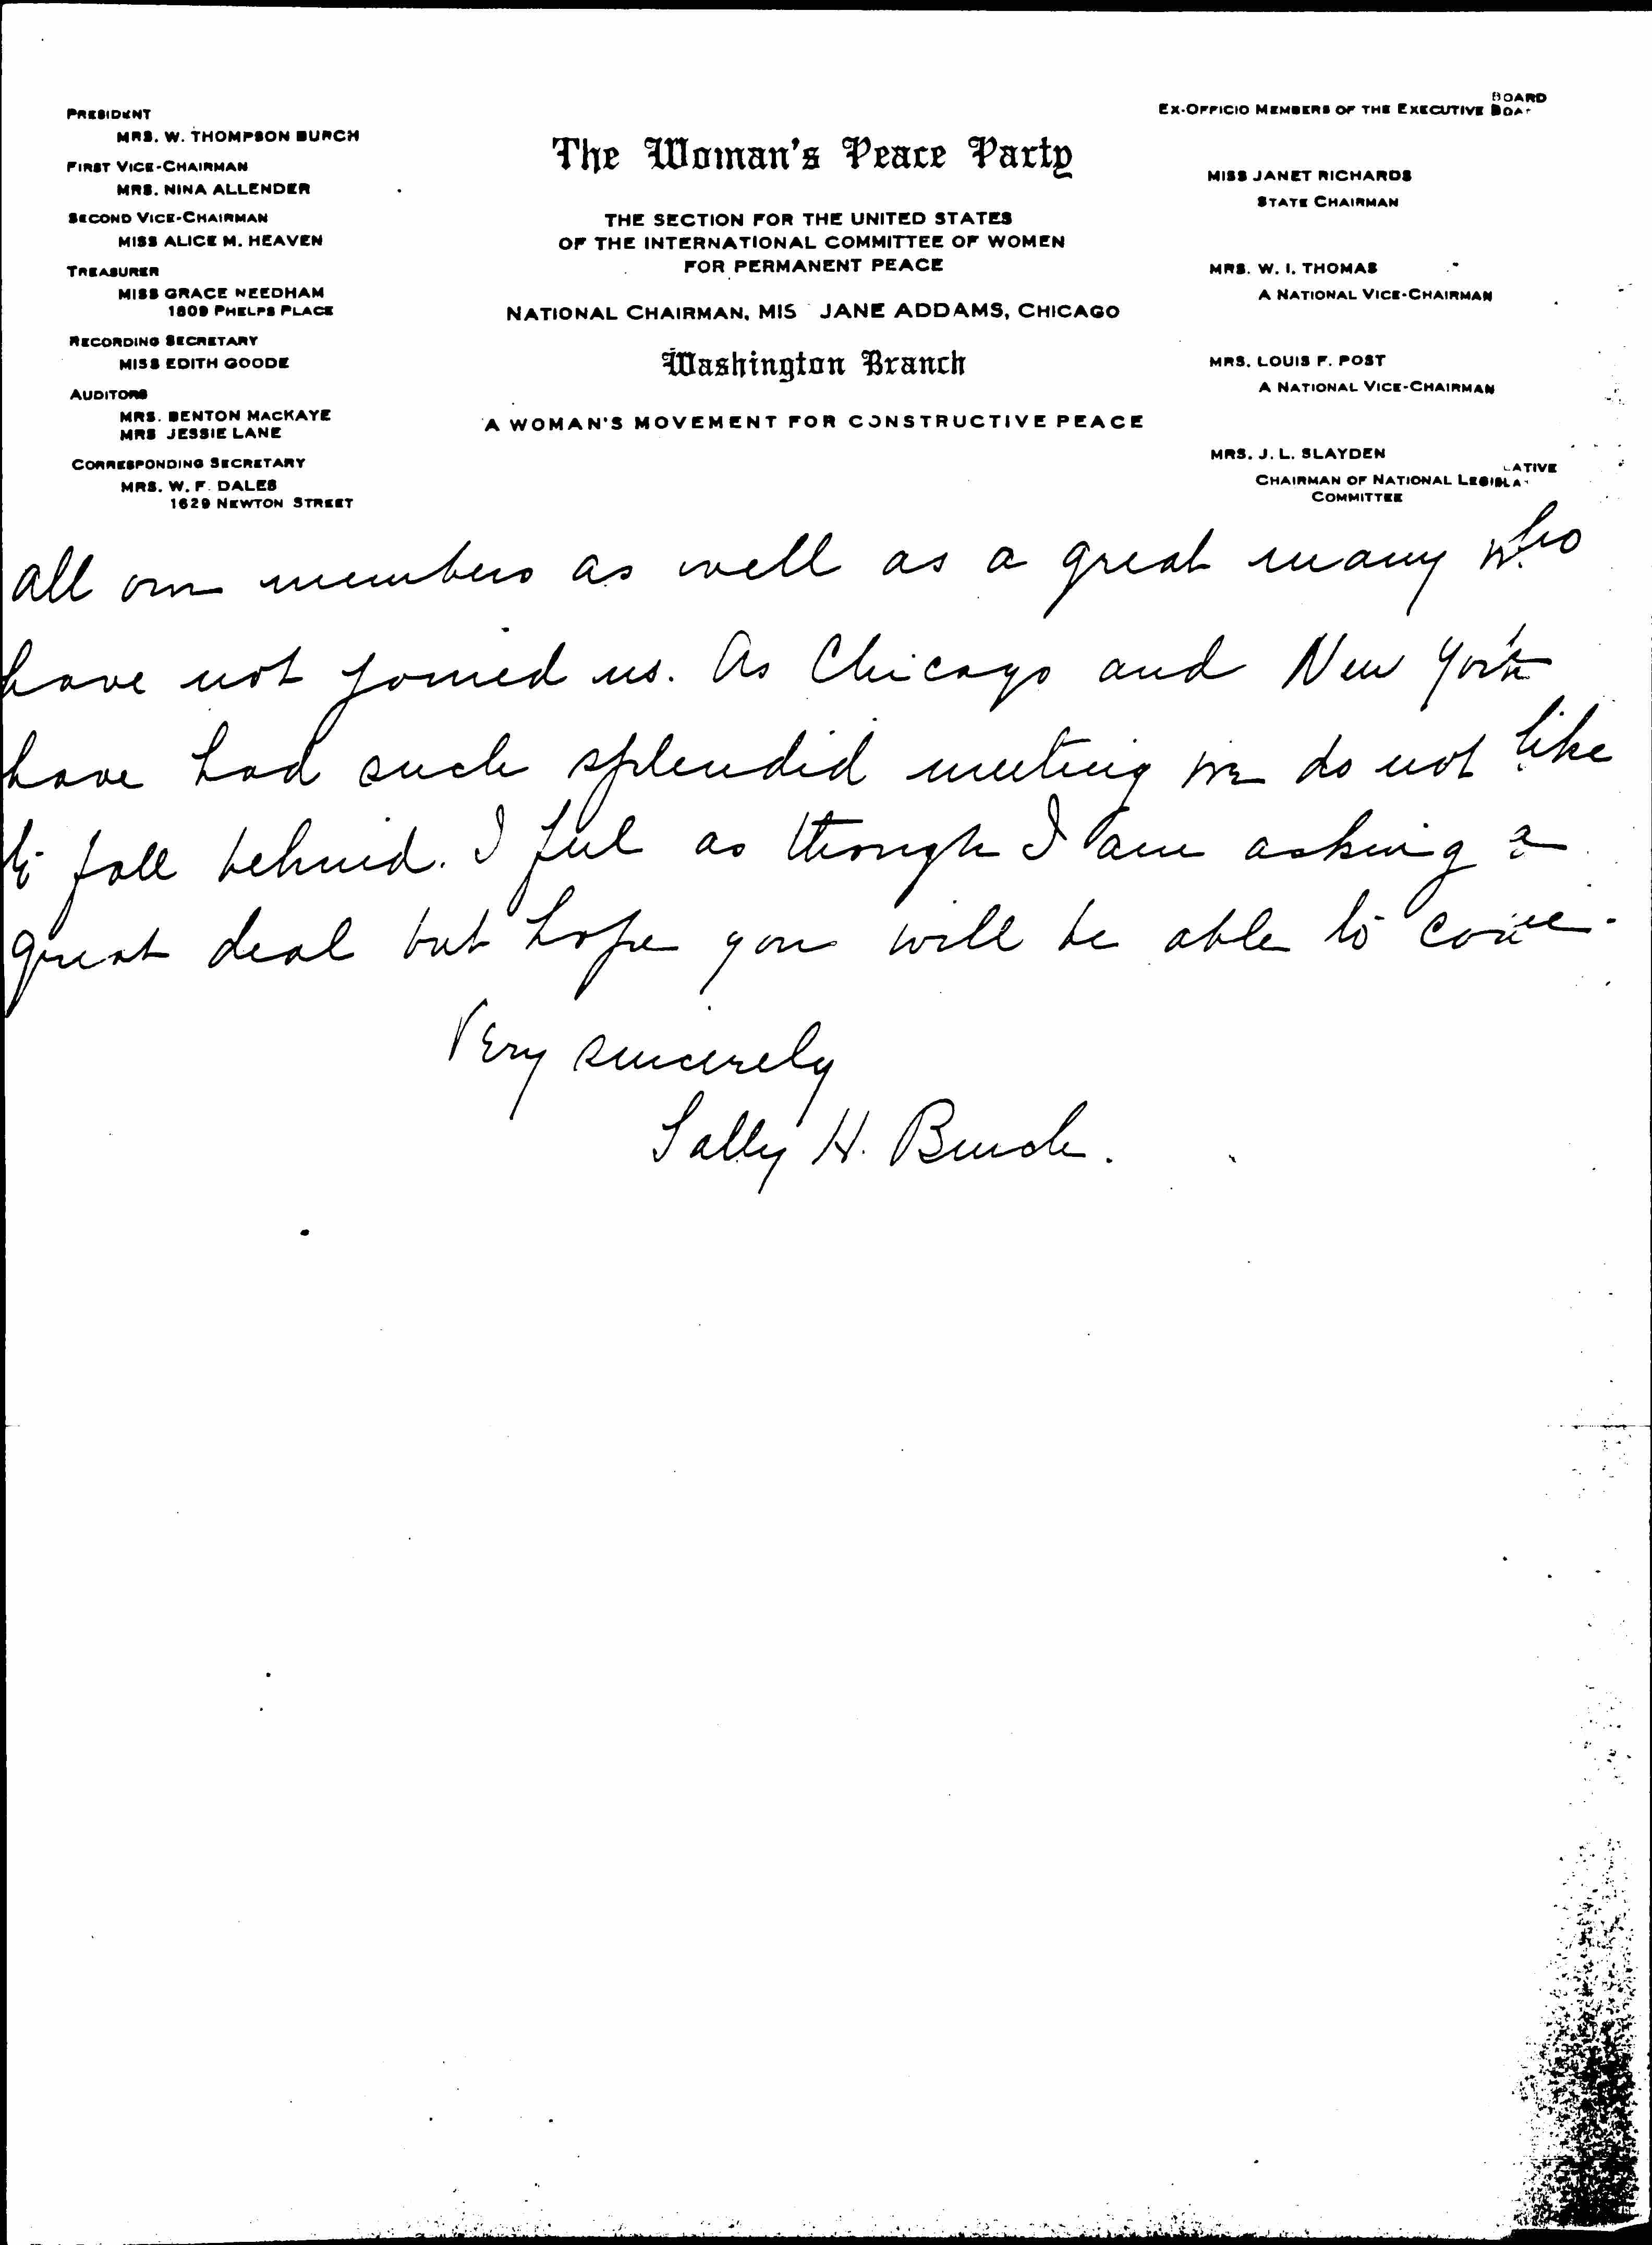 PRESIDENT
MRS. W. THOMPSON BURCH
FIRST VICE-CHAIRMAN
MRS. NINA ALLENDER
SECOND VICE-CHAIRMAN
MISS ALICE M. HEAVEN
TREASURER
MISS GRACE NEEDHAM
1809 PHELPS PLACE
RECORDING SECRETARY
MISS EDITH GOODE
AUDITORS
MRS. BENTON MACKAYE
MRS JESSIE LANE
CORRESPONDING SECRETARY
MRS. W. F. DALES
1629 NEWTON STREET
The Woman's Peace Party
THE SECTION FOR THE UNITED STATES
OF THE INTERNATIONAL COMMITTEE OF WOMEN
FOR PERMANENT PEACE
NATIONAL CHAIRMAN, MIS JANE ADDAMS, CHICAGO
Washington Branch
A WOMAN'S MOVEMENT FOR CONSTRUCTIVE PEACE
EX-OFFICIO MEMBERS OF THE EXECUTIVE BOARD
MISS JANET RICHARDS
STATE CHAIRMAN
MRS. W. I. THOMAS
A NATIONAL VICE-CHAIRMAN
MRS. LOUIS F. POST
A NATIONAL VICE-CHAIRMAN
MRS. J. L. SLAYDEN
CHAIRMAN OF NATIONAL LEGISLATIVE
COMMITTEE
all our members as well as a great many who
have not joined us. As Chicago and New York
have had such splendid meeting we do not like
to fall behind. I feel as though I am asking a
great deal but hope you will be able to come.
Very sincerely
Sally H. Burch.